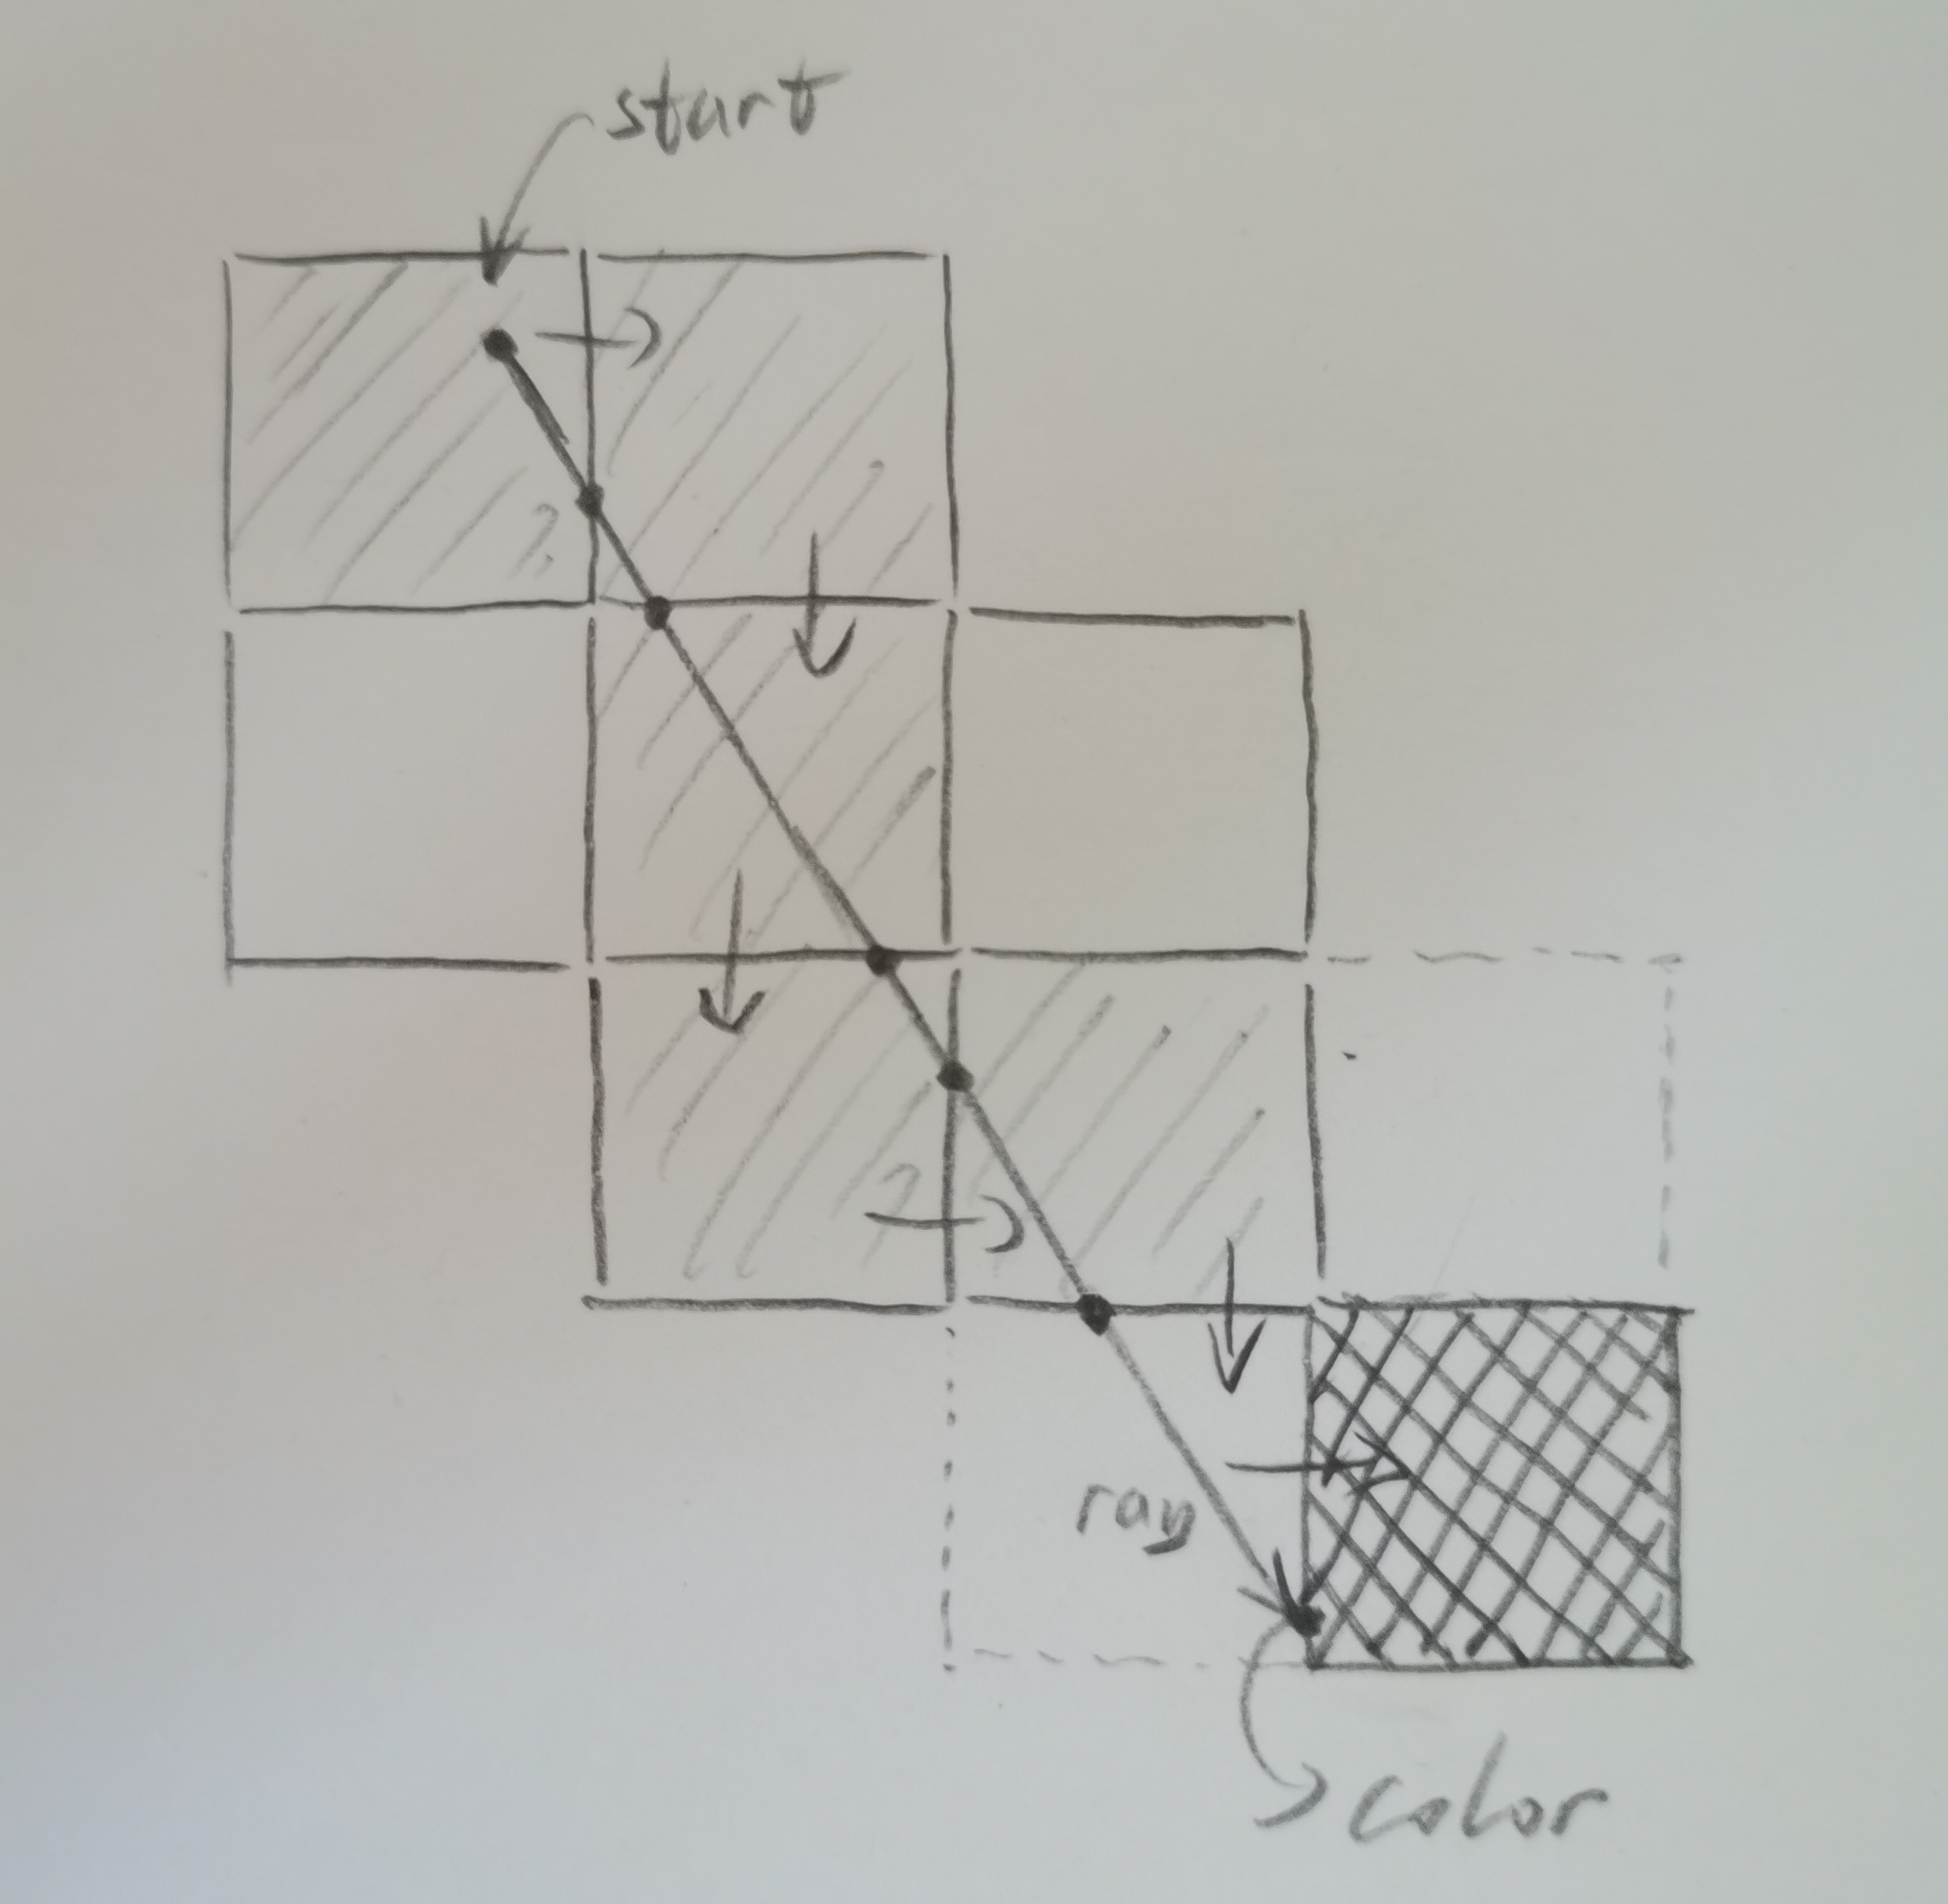 start
ray
color